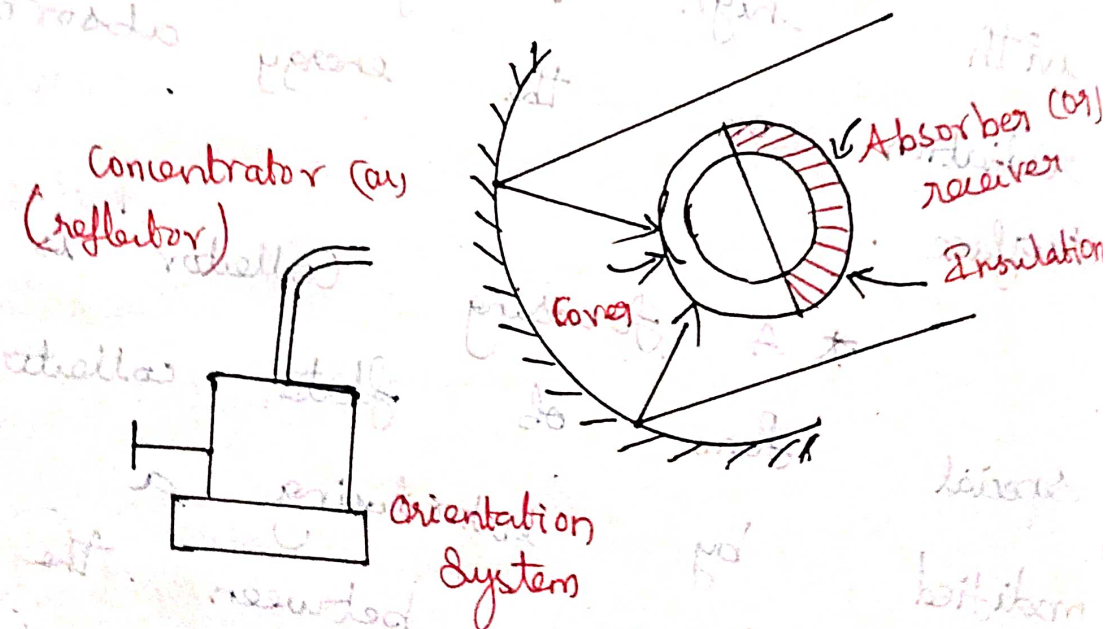 Concentrator (or)
(reflector)
Absorber (or)
receiver
Insulation
Cover
Orientation
System